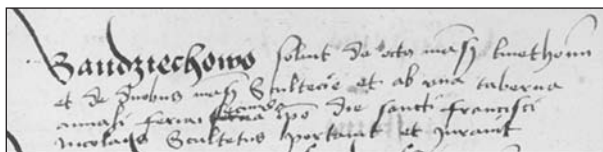 Gandziechowo solunt de octo mansis kmethonum
et de duobus mansis Scultecie et ab una taberna
annali ferian ipso die sancti francisci
Nicolaus Scultetus portavit et iuravit